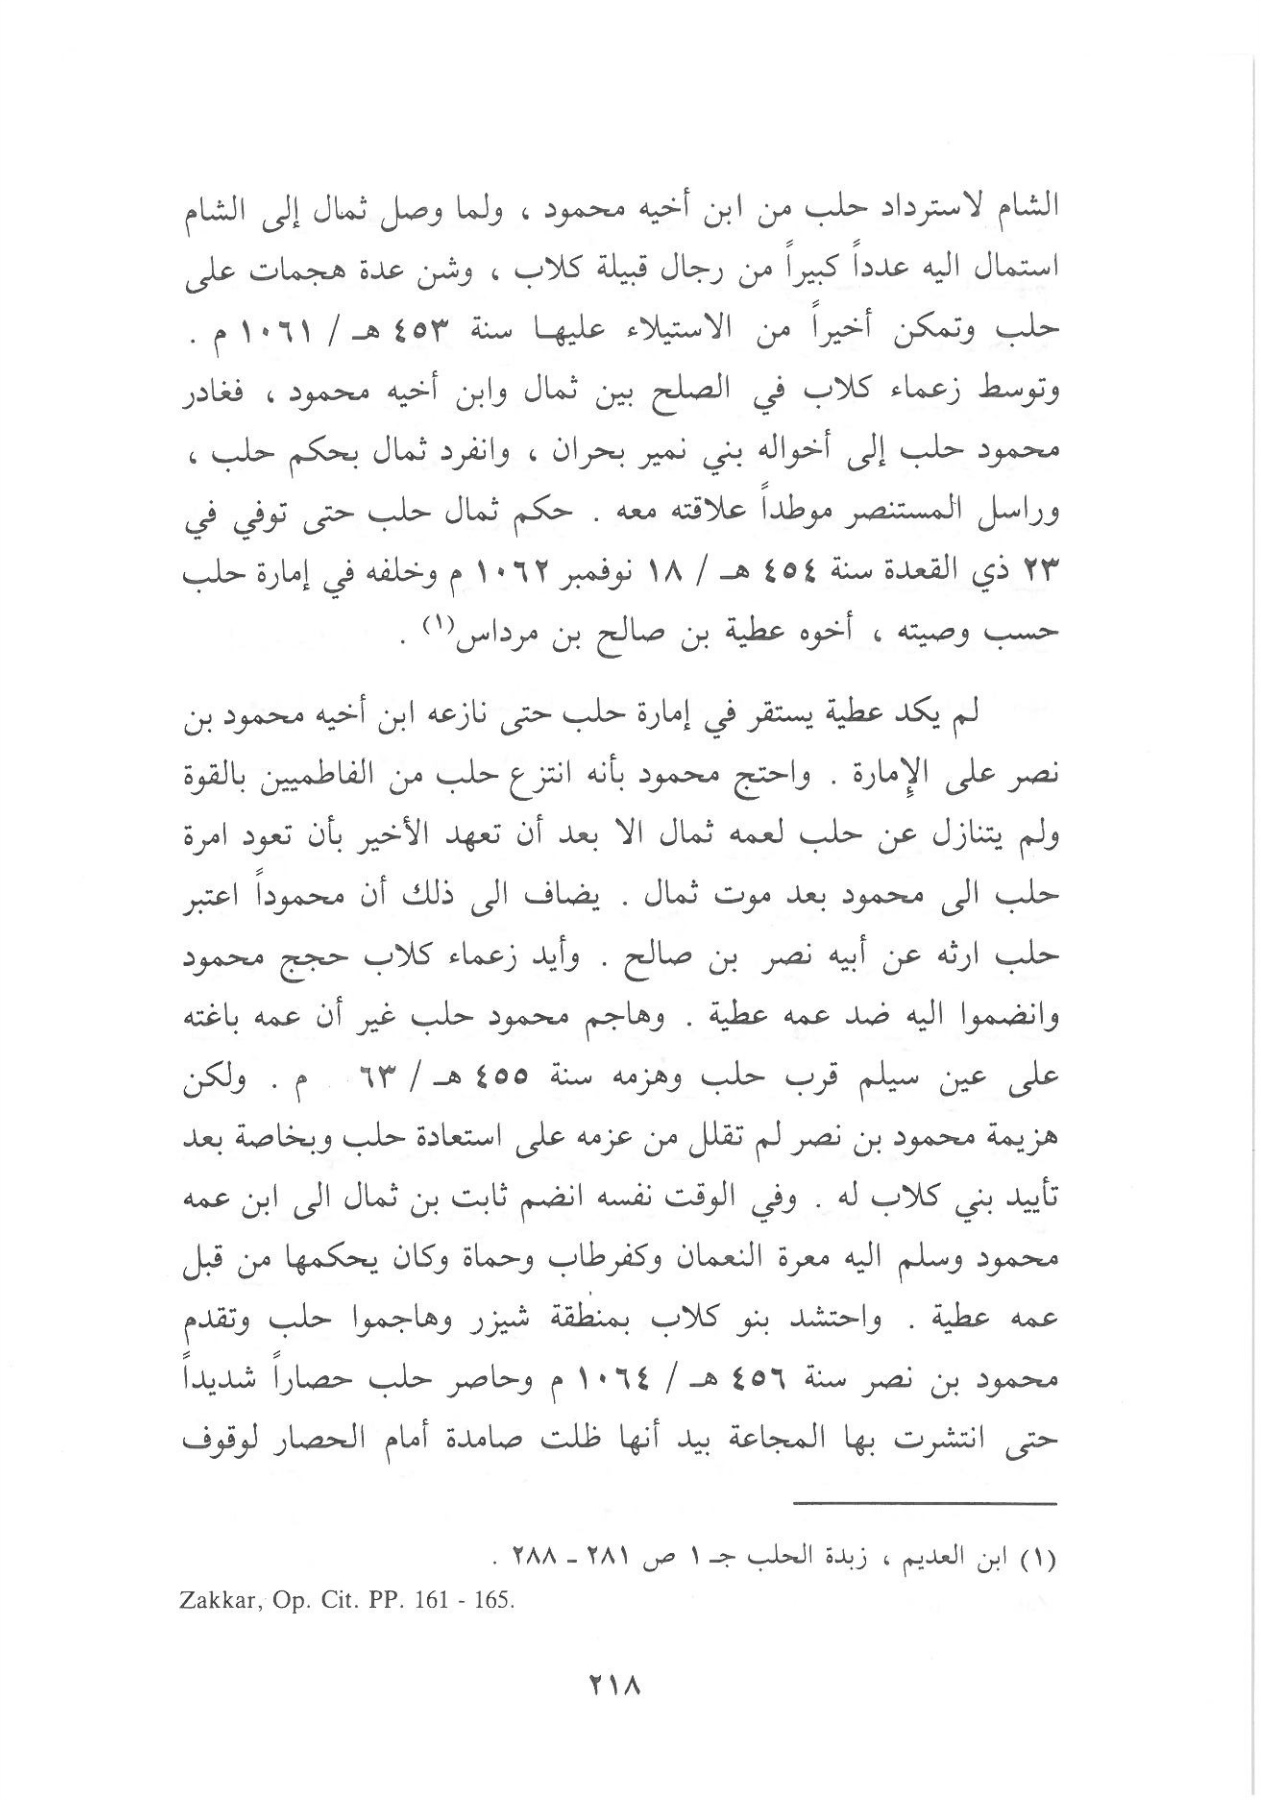 الشام لاسترداد حلب من ابن أخيه محمود ، ولما وصل ثمال إلى الشام
استمال اليه عدداً كبيراً من رجال قبيلة كلاب ، وشن عدة هجمات على
حلب وتمكن أخيراً من الاستيلاء عليها سنة ٤٥٣ هـ / ١٠٦١ م .
وتوسط زعماء كلاب في الصلح بين ثمال وابن أخيه محمود ، فغادر
محمود حلب إلى أخواله بني نمير بحران ، وانفرد ثمال بحكم حلب ،
وراسل المستنصر موطداً علاقته معه . حكم ثمال حلب حتى توفي في
٢٣ ذي القعدة سنة ٤٥٤ هـ / ١٨ نوفمبر ١٠٦٢ م وخلفه في إمارة حلب
حسب وصيته ، أخوه عطية بن صالح بن مرداس(١) .
لم يكد عطية يستقر في إمارة حلب حتى نازعه ابن أخيه محمود بن
نصر على الإمارة . واحتج محمود بأنه انتزع حلب من الفاطميين بالقوة
ولم يتنازل عن حلب لعمه ثمال الا بعد أن تعهد الأخير بأن تعود امرة
حلب الى محمود بعد موت ثمال . يضاف الى ذلك أن محموداً اعتبر
حلب ارثه عن أبيه نصر بن صالح . وأيد زعماء كلاب حجج محمود
وانضموا اليه ضد عمه عطية . وهاجم محمود حلب غير أن عمه باغته
على عين سيلم قرب حلب وهزمه سنة ٤٥٥ هـ / ٦٣ م . ولكن
هزيمة محمود بن نصر لم تقلل من عزمه على استعادة حلب وبخاصة بعد
تأييد بني كلاب له . وفي الوقت نفسه انضم ثابت بن ثمال الى ابن عمه
محمود وسلم اليه معرة النعمان وكفرطاب وحماة وكان يحكمها من قبل
عمه عطية . واحتشد بنو كلاب بمنطقة شيزر وهاجموا حلب وتقدم
محمود بن نصر سنة ٤٥٦ هـ / ١٠٦٤ م وحاصر حلب حصاراً شديداً
حتى انتشرت بها المجاعة بيد أنها ظلت صامدة أمام الحصار لوقوف
(١) ابن العديم ، زبدة الحلب جـ ١ ص ٢٨١ - ٢٨٨ .
Zakkar, Op. Cit. PP. 161 - 165.
٢١٨